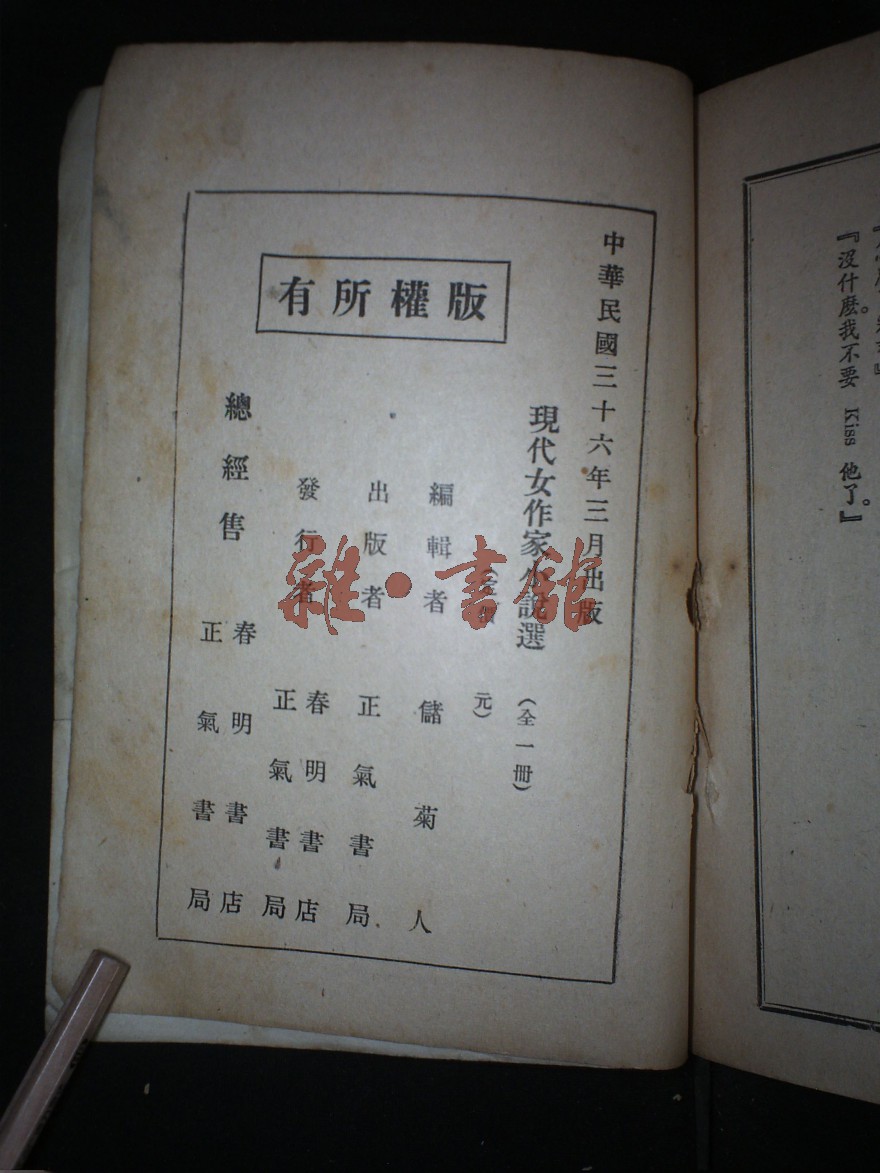 『沒什麼。我不要 Kiss 他了。』
中華民國三十六年三月出版
版權所有
現代女作家小說選 (全一冊)
元)
編輯者 儲菊人
出版者 正氣書局
發行者 春明書店
正氣書局
總經售 春明書店
正氣書局
雜·書館